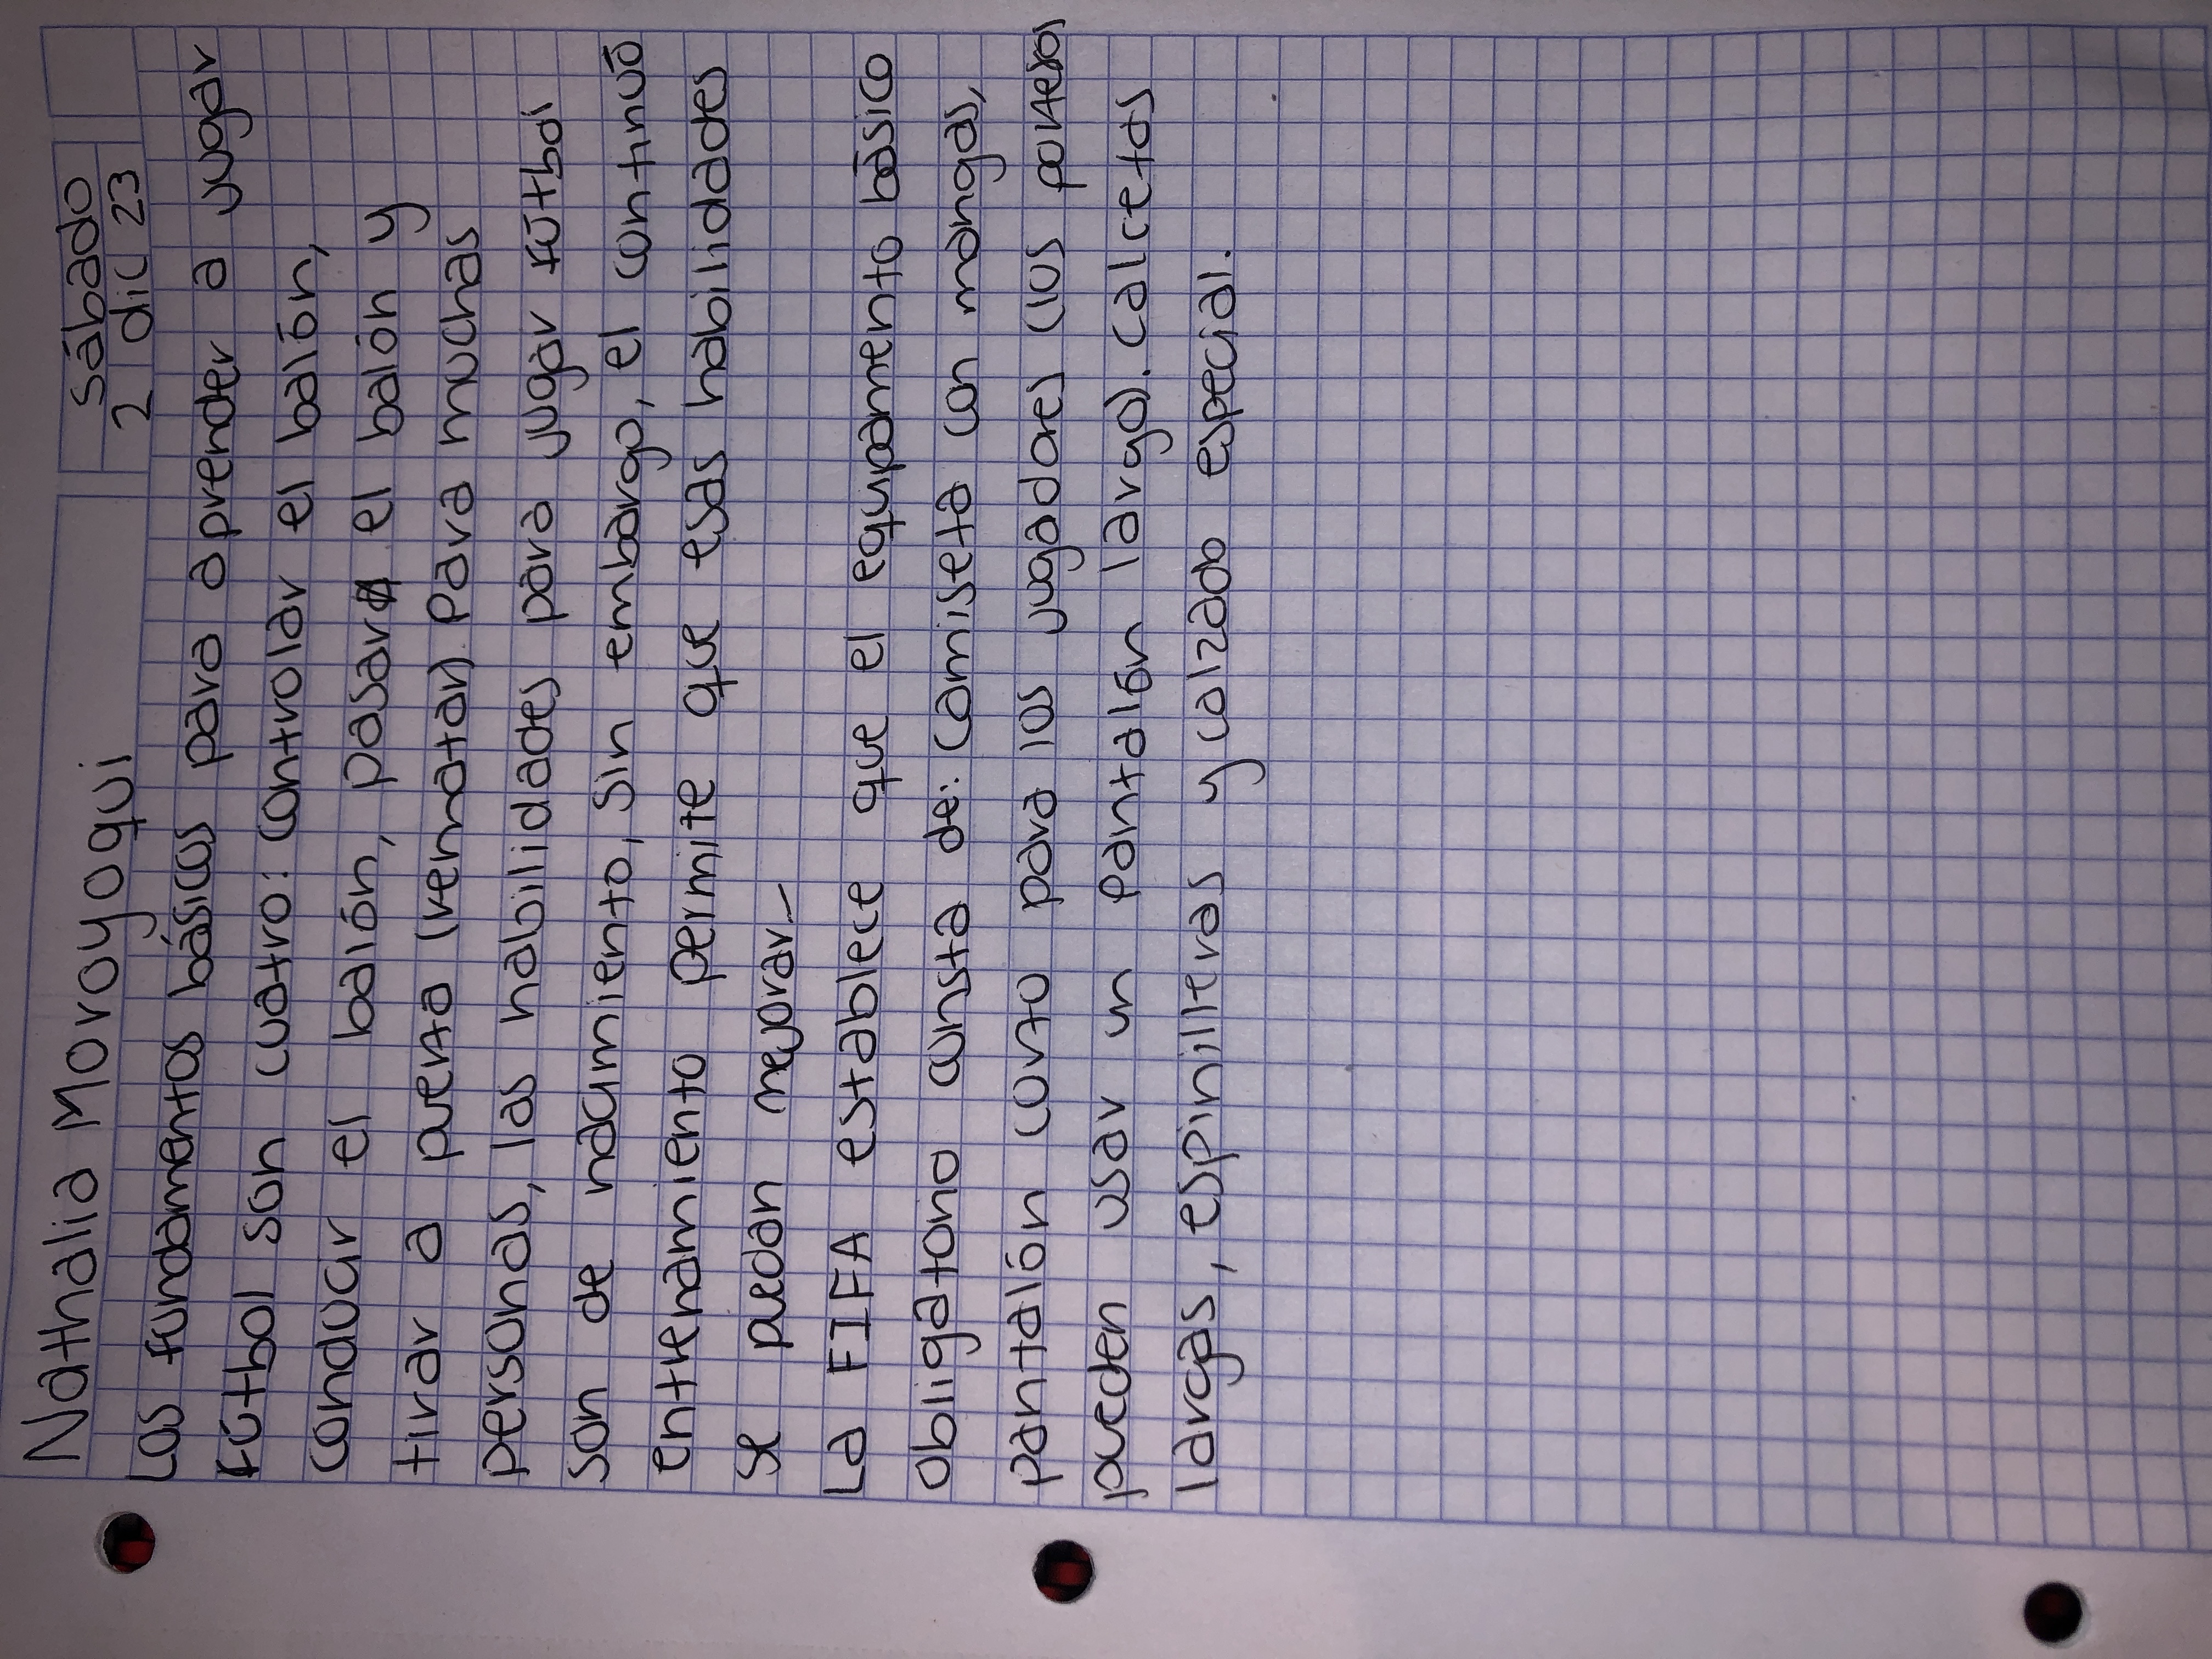 Nathalia Moroyoqui
sábado
2 dic 23
Los fundamentos básicos para aprender a jugar
fútbol son cuatro: controlar el balón,
conducir el balón, pasar el balón y
tirar a puerta (rematar). Para muchas
personas, las habilidades para jugar fútbol
son de nacimiento, sin embargo, el continuó
entrenamiento permite que esas habilidades
se puedan mejorar.
La FIFA establece que el equipamento básico
obligatorio consta de: camiseta con mangas,
pantalón corto para los jugadores (los porteros
pueden usar un pantalón largo). calcetas
largas, espinilleras y calzado especial.